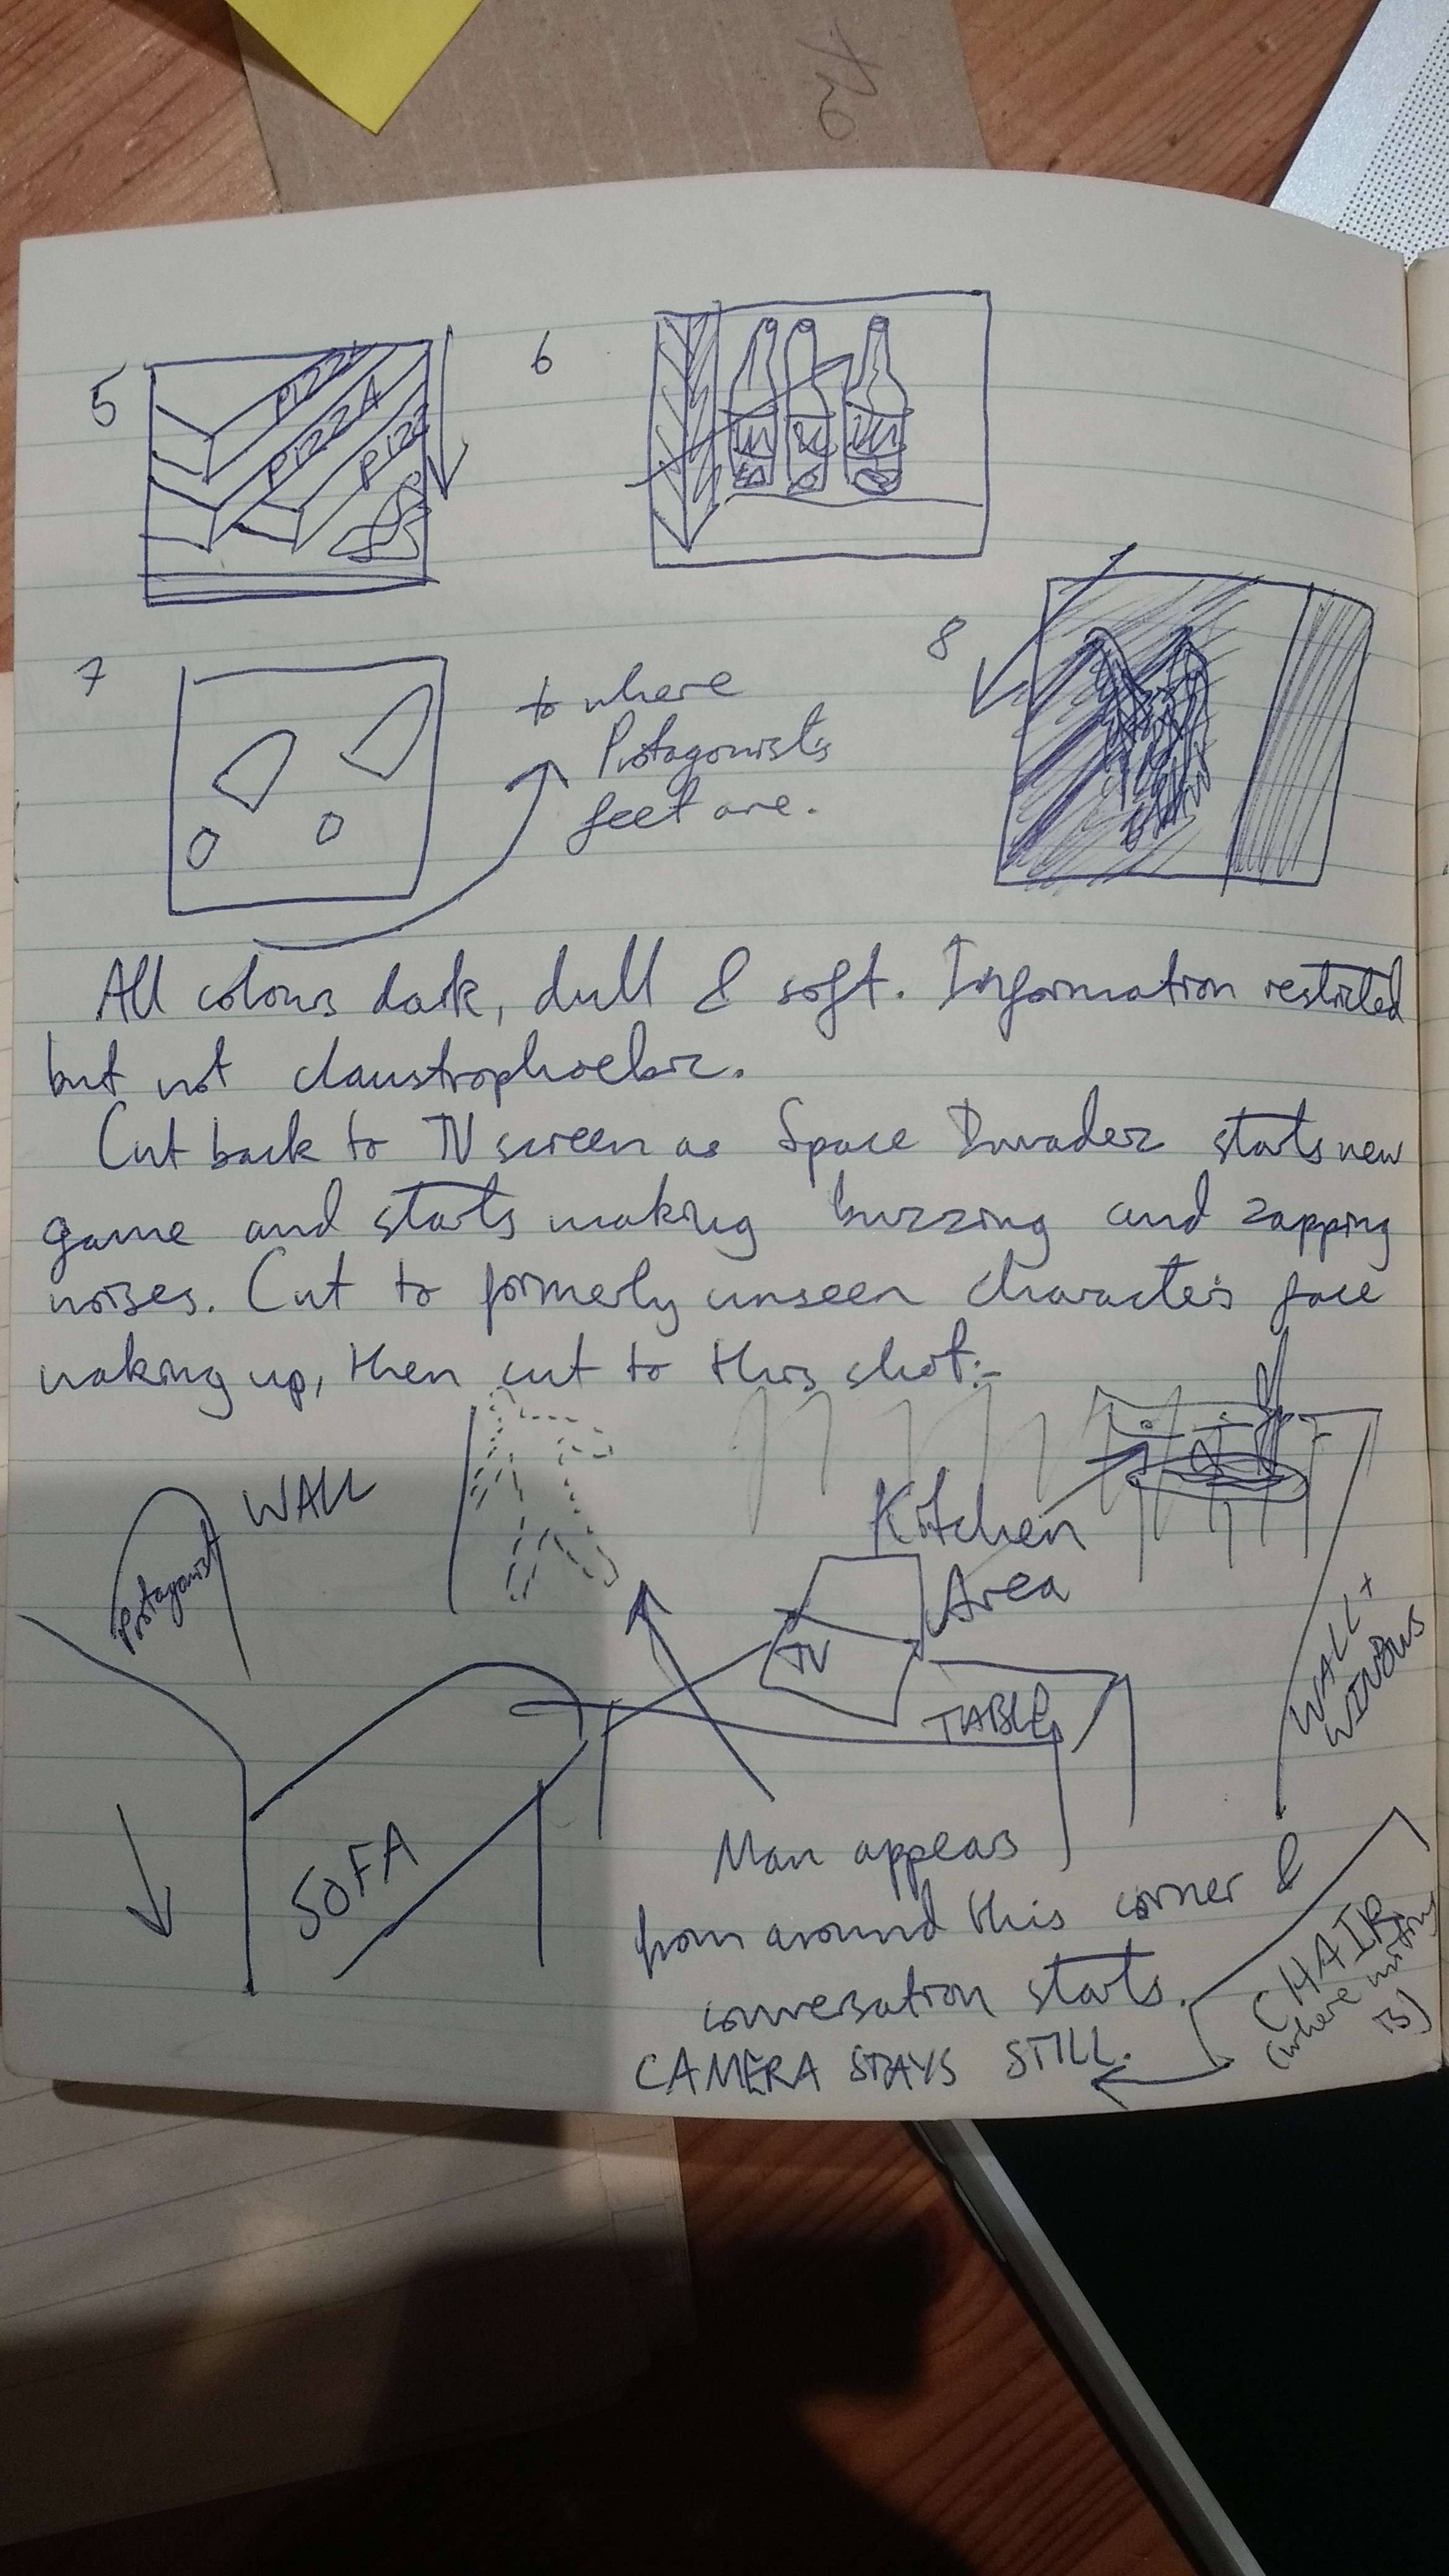 5
PIZZ
PIZZA
PIZZ
6
7
to where
Protagonist's
feet are.
8
All colours dark, dull & soft. Information restricted
but not claustrophoebic.
Cut back to TV screen as Space Invaderz starts new
game and starts making buzzing and zapping
noises. Cut to formerly unseen character's face
waking up, then cut to this shot:-
WALL
Protagonist
Kitchen
Area
TV
TABLE
WALL +
WINDOWS
SOFA
Man appears
from around this corner &
conversation starts.
CAMERA STAYS STILL.
CHAIR
(where
is)